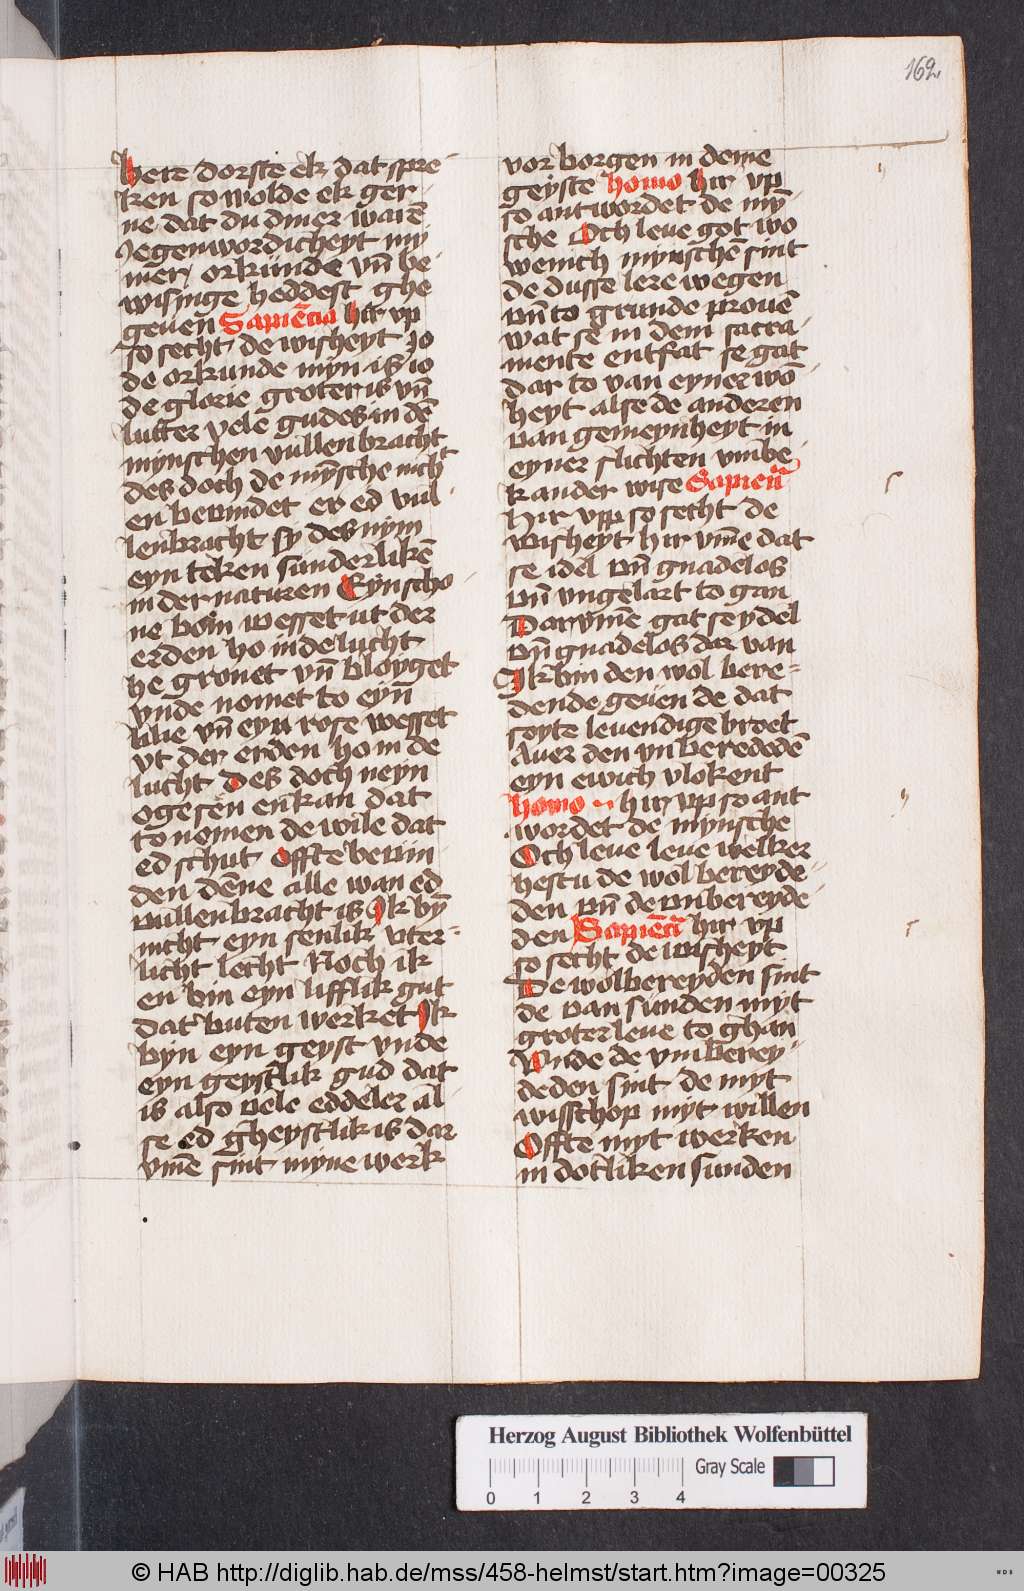 162
here dorste ek dat spre-
ken so wolde ek ger-
ne dat du diner warē
Jegenwordicheyt my
mer orkunde vn̄ be-
wisinge heddest ghe
geuen Sapiēcia hir vp
so secht de wisheyt Jo
de orkunde myn is io
de glorie groter is vn̄
lutter vele gudes in dē
mynschen vullenbracht
des doch de mȳsche nicht
en beuindet er ed vul-
lenbracht sy des nym
eyn teken sunderlikē
in der naturen Eyn scho-
ne bom wesset ut der
erden ho in de lucht
he gronet vn̄ bloyget
vnde nomet to eyn̄
lilie vn̄ eyn rose wesset
vt der erden ho in de
lucht des doch neyn
oge sen enkan dat
to nomen de wile dat
ed schut offte beuin
den dēne alle wan ed
vullenbracht is Ik bȳ
nicht eyn senlik vter-
licht lecht Noch ik
en bin eyn lifflik gut
dat buten werket Ik
byn eyn geyst vnde
eyn geystlik gud dat
is also vele eddeler al-
se ed gheystlik is dar
vmē sint myne werk
vorborgen in deme
geyste homo hir vp
so antwordet de mȳ
sche Och leue got wo
wenich mynschē sint
de dusse lere wegen
vn̄ to grunde prouē
wat se in dem sacra-
mente entfat se gat
dar to van eyner wō
heyt alse de anderen
van gemeynheyt in
eyner slichten vmbe-
kander wise Sapien̄
Hir vpp so secht de
wisheyt hir vm̄e dat
se idel vn̄ gnadelos
vn̄ vngelart to gan
Darvm̄e gat se ydel
vn̄ gnadelos dar van
Ik bin den wol bere-
dende geuen de dat
soyte leuendige broet
Auer den vn beredēdē
eyn ewich vlokent
homo hir vp so ant
wordet de mynsche
Och leue leue welker
hestu de wol bereyde-
den vn̄ de vnbereyde-
den Sapiēci hir vp
so secht de wisheyt
De wolbereyden sint
de van sunden myt
groter leue to ghan
Vnde de vmberey-
deden sint de myt
wisschop myt willen
Offte myt werken
in dotliken sunden
Herzog August Bibliothek Wolfenbüttel
Gray Scale
0 1 2 3 4
© HAB http://diglib.hab.de/mss/458-helmst/start.htm?image=00325